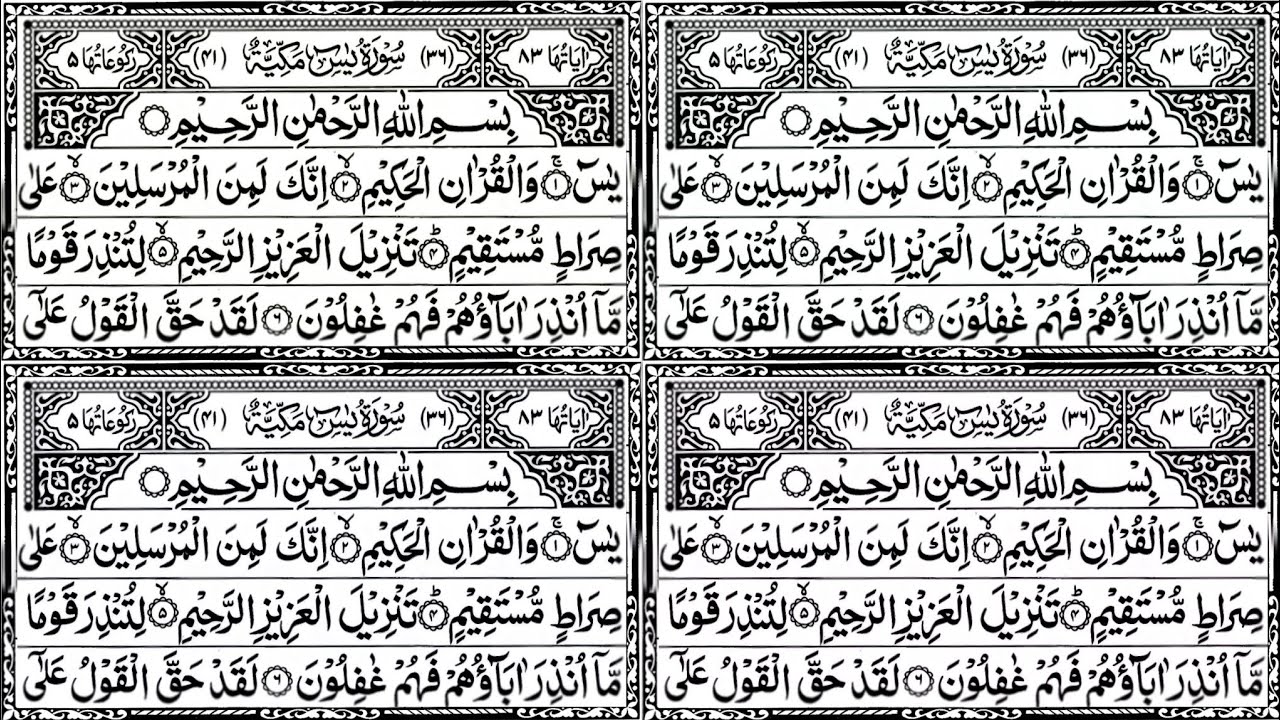 اٰیَاتُهَا ۸۳ (۳۶) سُوْرَةُ یٰسٓ مَكِّیَّةٌ (۴۱) رُكُوْعَاتُهَا ۵
بِسْمِ اللّٰهِ الرَّحْمٰنِ الرَّحِیْمِ
یٰسٓ ۚ﴿۱﴾ وَالْقُرْاٰنِ الْحَكِیْمِ ۙ﴿۲﴾ اِنَّكَ لَمِنَ الْمُرْسَلِیْنَ ۙ﴿۳﴾ عَلٰی
صِرَاطٍ مُّسْتَقِیْمٍ ؕ﴿۴﴾ تَنْزِیْلَ الْعَزِیْزِ الرَّحِیْمِ ۙ﴿۵﴾ لِتُنْذِرَ قَوْمًا
مَّاۤ اُنْذِرَ اٰبَآؤُهُمْ فَهُمْ غٰفِلُوْنَ ﴿۶﴾ لَقَدْ حَقَّ الْقَوْلُ عَلٰۤی
اٰیَاتُهَا ۸۳ (۳۶) سُوْرَةُ یٰسٓ مَكِّیَّةٌ (۴۱) رُكُوْعَاتُهَا ۵
بِسْمِ اللّٰهِ الرَّحْمٰنِ الرَّحِیْمِ
یٰسٓ ۚ﴿۱﴾ وَالْقُرْاٰنِ الْحَكِیْمِ ۙ﴿۲﴾ اِنَّكَ لَمِنَ الْمُرْسَلِیْنَ ۙ﴿۳﴾ عَلٰی
صِرَاطٍ مُّسْتَقِیْمٍ ؕ﴿۴﴾ تَنْزِیْلَ الْعَزِیْزِ الرَّحِیْمِ ۙ﴿۵﴾ لِتُنْذِرَ قَوْمًا
مَّاۤ اُنْذِرَ اٰبَآؤُهُمْ فَهُمْ غٰفِلُوْنَ ﴿۶﴾ لَقَدْ حَقَّ الْقَوْلُ عَلٰۤی
اٰیَاتُهَا ۸۳ (۳۶) سُوْرَةُ یٰسٓ مَكِّیَّةٌ (۴۱) رُكُوْعَاتُهَا ۵
بِسْمِ اللّٰهِ الرَّحْمٰنِ الرَّحِیْمِ
یٰسٓ ۚ﴿۱﴾ وَالْقُرْاٰنِ الْحَكِیْمِ ۙ﴿۲﴾ اِنَّكَ لَمِنَ الْمُرْسَلِیْنَ ۙ﴿۳﴾ عَلٰی
صِرَاطٍ مُّسْتَقِیْمٍ ؕ﴿۴﴾ تَنْزِیْلَ الْعَزِیْزِ الرَّحِیْمِ ۙ﴿۵﴾ لِتُنْذِرَ قَوْمًا
مَّاۤ اُنْذِرَ اٰبَآؤُهُمْ فَهُمْ غٰفِلُوْنَ ﴿۶﴾ لَقَدْ حَقَّ الْقَوْلُ عَلٰۤی
اٰیَاتُهَا ۸۳ (۳۶) سُوْرَةُ یٰسٓ مَكِّیَّةٌ (۴۱) رُكُوْعَاتُهَا ۵
بِسْمِ اللّٰهِ الرَّحْمٰنِ الرَّحِیْمِ
یٰسٓ ۚ﴿۱﴾ وَالْقُرْاٰنِ الْحَكِیْمِ ۙ﴿۲﴾ اِنَّكَ لَمِنَ الْمُرْسَلِیْنَ ۙ﴿۳﴾ عَلٰی
صِرَاطٍ مُّسْتَقِیْمٍ ؕ﴿۴﴾ تَنْزِیْلَ الْعَزِیْزِ الرَّحِیْمِ ۙ﴿۵﴾ لِتُنْذِرَ قَوْمًا
مَّاۤ اُنْذِرَ اٰبَآؤُهُمْ فَهُمْ غٰفِلُوْنَ ﴿۶﴾ لَقَدْ حَقَّ الْقَوْلُ عَلٰۤی